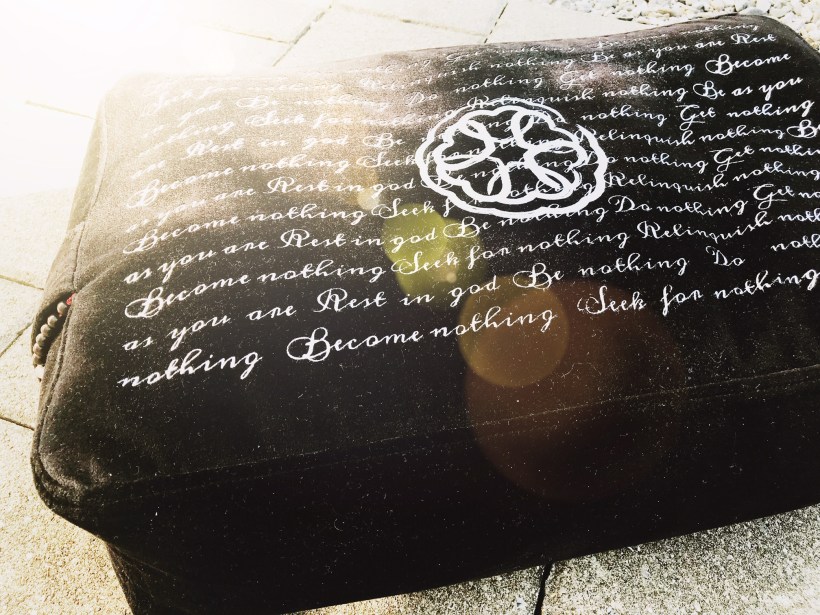 nothing
Relinquish nothing Be as you are Rest
Seek for nothing Do nothing Get nothing Become
in god Be nothing Relinquish nothing Be as you
nothing Seek for nothing Do nothing Get nothing
are Rest in god Be Relinquish nothing Be
Become nothing Seek nothing Do nothing Get nothing
as you are Rest in god Relinquish nothing
Become nothing Seek nothing Do nothing Get
as you are Rest in god Be nothing Relinquish nothing
Become nothing Seek for nothing Relinquish nothing
as you are Rest in god Be nothing Do
nothing Become nothing Seek for nothing